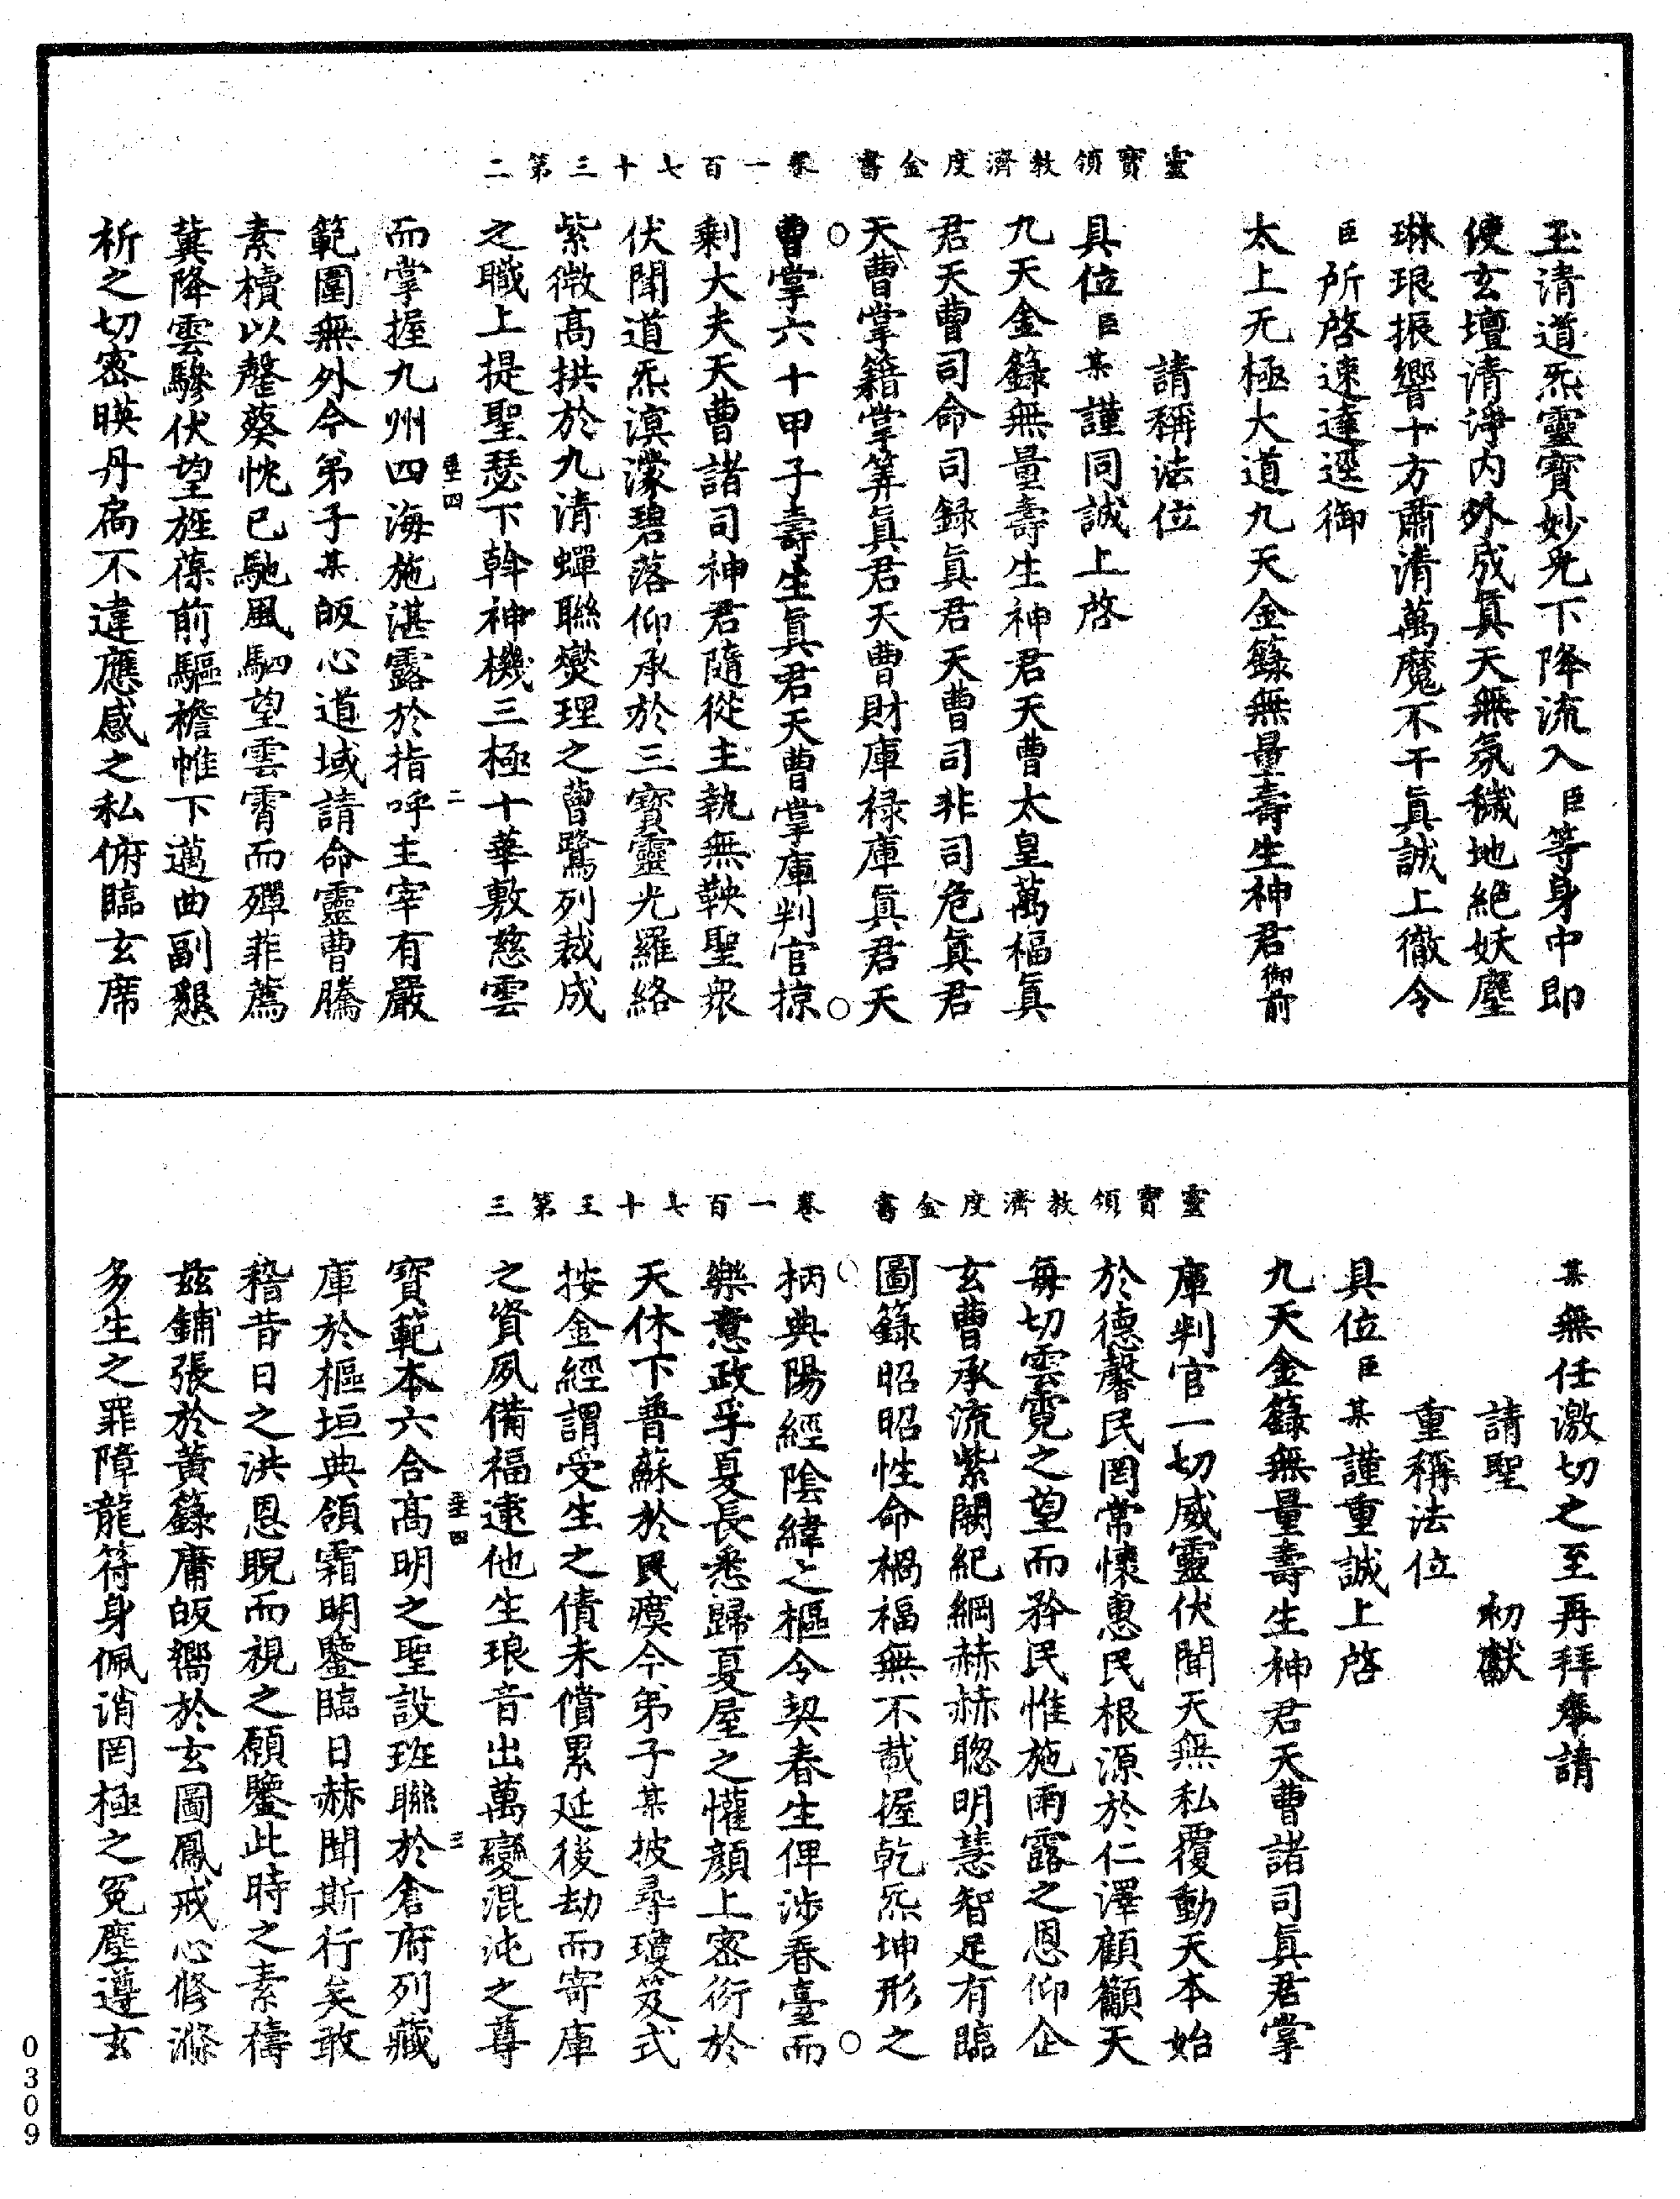 靈寶領教濟度金書　卷一百七十三第二
玉清道炁靈寶妙光下降流入臣等身中即
使玄壇清淨內外成眞天無氛穢地絕妖塵
琳琅振響十方肅清萬魔不干眞誠上徹令
臣所啓速達逕御
太上无極大道九天金籙無量壽生神君御前
請稱法位
具位臣某謹同誠上啓
九天金籙無量壽生神君天曹太皇萬福眞
君天曹司命司錄眞君天曹司非司危眞君
天曹掌籍掌筭眞君天曹財庫祿庫眞君天
曹掌六十甲子壽生眞君天曹掌庫判官掠
剩大夫天曹諸司神君隨從主執無鞅聖衆
伏聞道炁溟濛碧落仰承於三寶靈光羅絡
紫微高拱於九清蟬聯爕理之曹鷺列裁成
之職上提聖瑟下斡神機三極十華敷慈雲
臣上四　二
而掌握九州四海施湛露於指呼主宰有嚴
範圍無外今弟子某皈心道域請命靈曹騰
素櫝以罄葵忱已馳風馹望雲霄而殫菲薦
冀降雲驂伏望旌葆前驅襜帷下邁曲副懇
祈之切密暎丹扃不違應感之私俯臨玄席
靈寶領教濟度金書　卷一百七十三第三
某無任激切之至再拜奉請
請聖　初獻
重稱法位
具位臣某謹重誠上啓
九天金籙無量壽生神君天曹諸司眞君掌
庫判官一切威靈伏聞天無私覆動天本始
於德馨民罔常懷惠民根源於仁澤顧籲天
每切雲霓之望而矜民惟施雨露之恩仰企
玄曹承流紫闕紀綱赫赫聰明慧智足有臨
圖籙昭昭性命禍福無不載握乾炁坤形之
柄典陽經陰緯之樞令契春生俾涉春臺而
樂意政孚夏長悉歸夏屋之懽顏上密衍於
天休下普蘇於民瘼今弟子某披尋瓊笈式
按金經謂受生之債未償累延後劫而寄庫
之資夙備福逮他生琅音出萬變混沌之尊
三
寶範本六合高明之聖設班聯於倉府列藏
庫於樞垣典領霜明鑒臨日赫聞斯行矣敢
稽昔日之洪恩睨而視之願鑒此時之素禱
茲鋪張於黃籙庸皈嚮於玄圖鳳戒心修滌
多生之罪障龍符身佩消罔極之冤塵遵玄
0309